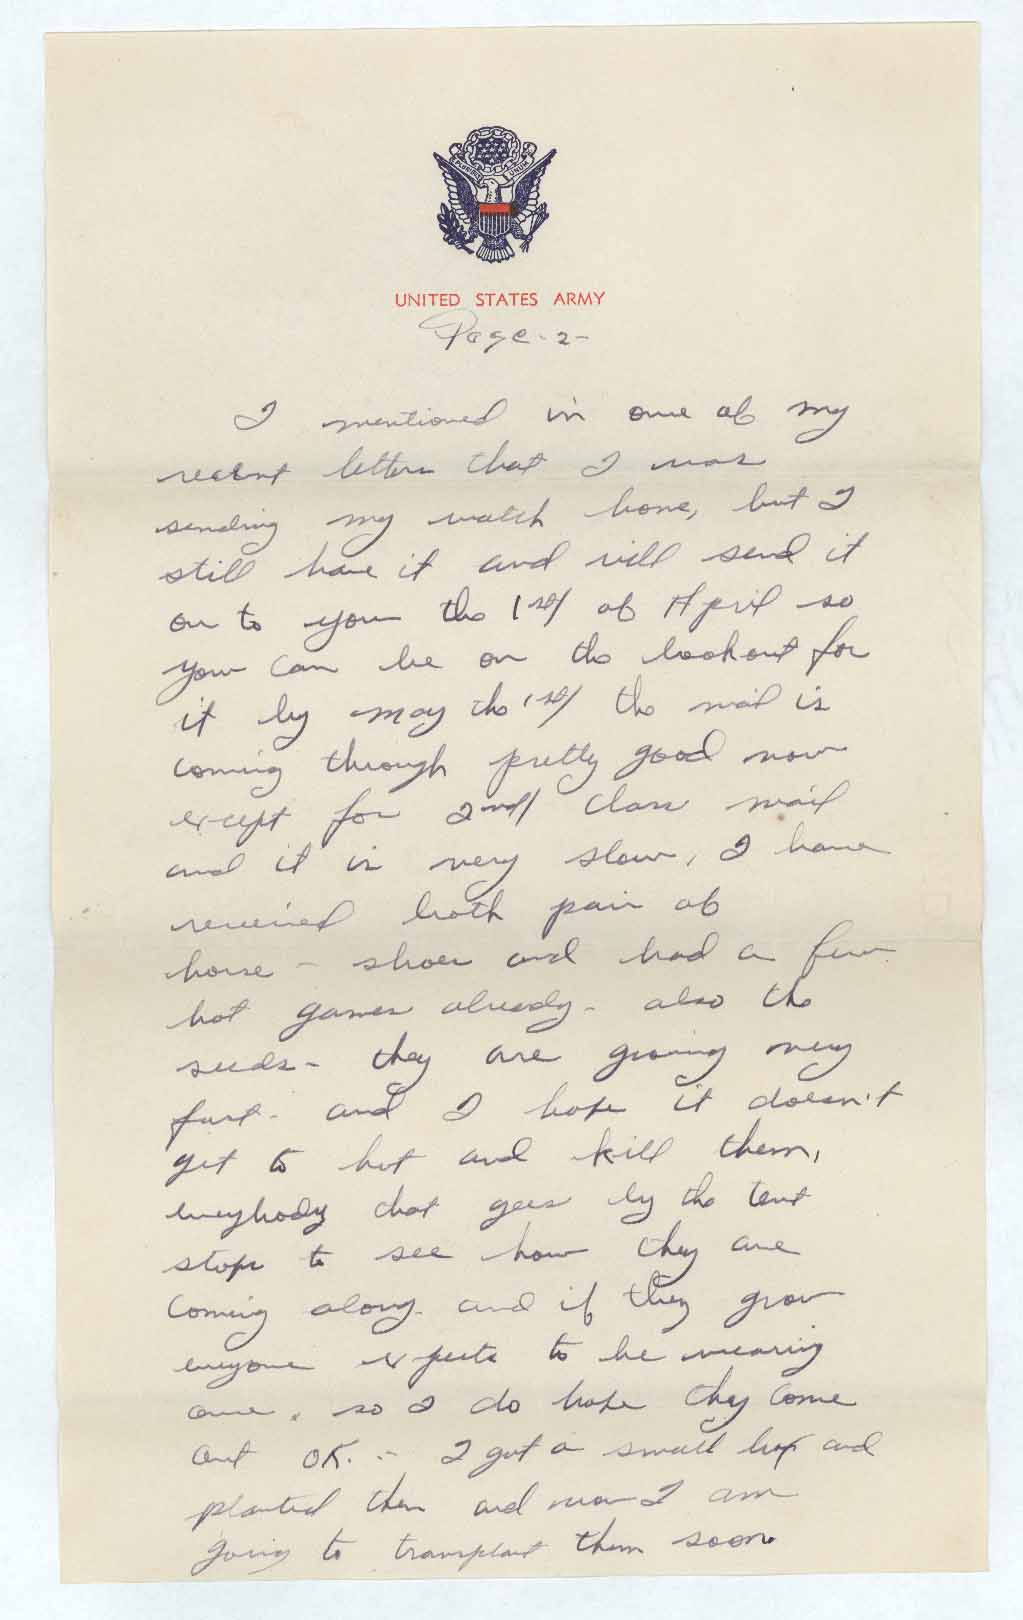 E PLURIBUS UNUM
UNITED STATES ARMY
Page -2-
I mentioned in one of my
recent letters that I was
sending my watch home, but I
still have it and will send it
on to you the 1st/ of April so
you can be on the lookout for
it by may the 1st/ the mail is
coming through pretty good now
except for 2nd/ class mail
and it is very slow, I have
received both pair of
horse - shoes and had a few
hot games already - also the
seeds - they are growing very
fast - and I hope it doesn't
get to hot and kill them,
everybody that goes by the tent
stops to see how they are
coming along - and if they grow
everyone expects to be wearing
one, so I do hope they come
out OK. - I got a small box and
planted them and now I am
going to transplant them soon